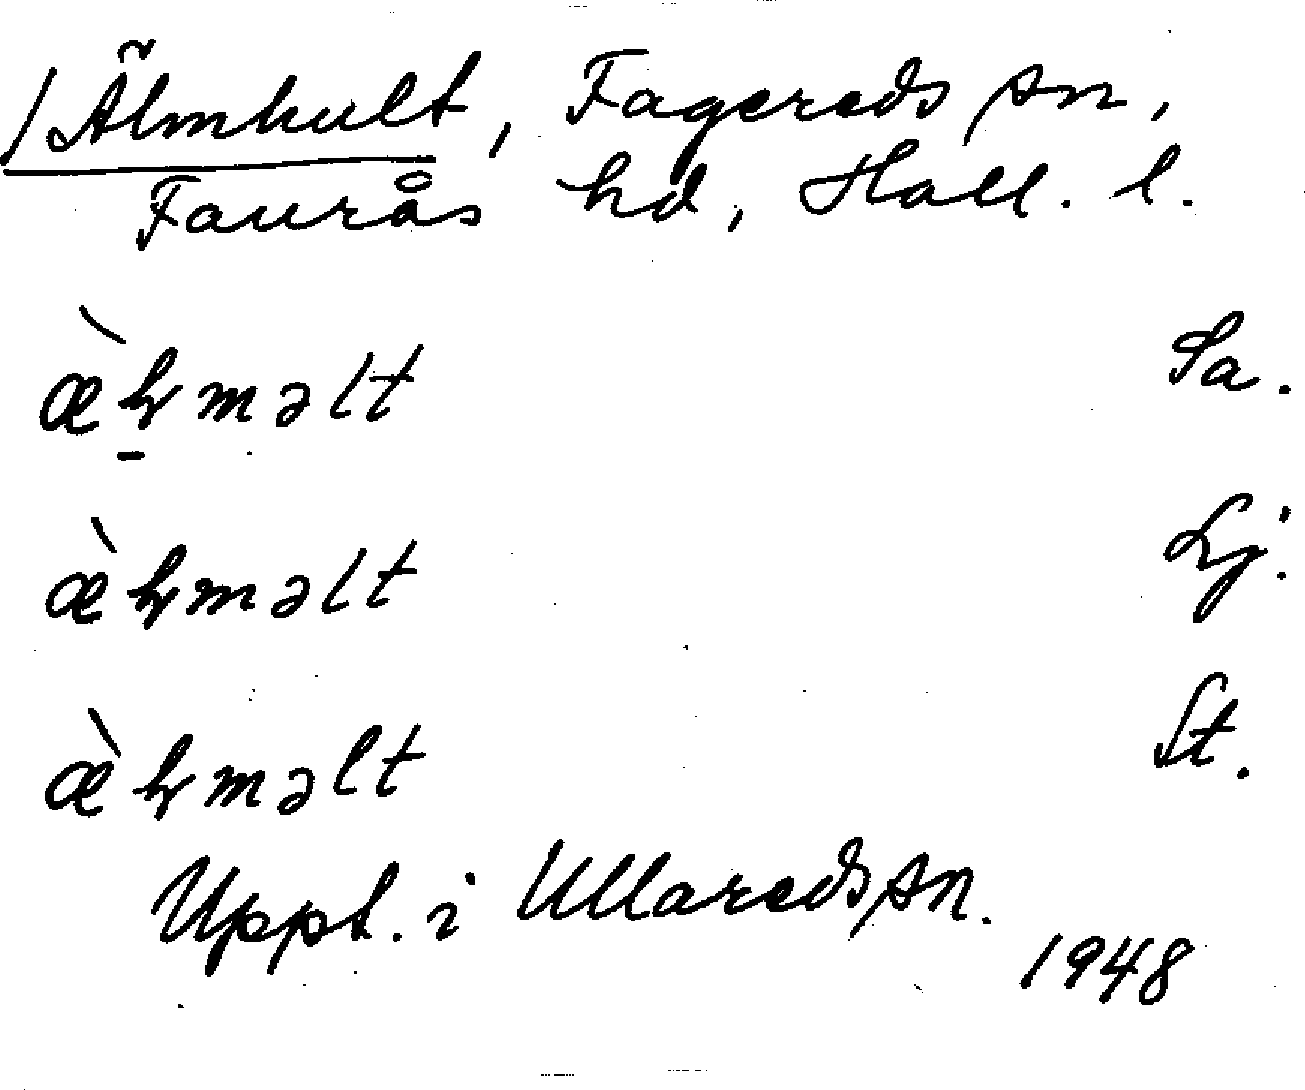 /Älmhult, Fagereds sn,
Faurås hd, Hall. l.
æ̀ɦməlt Sa.
æ̀ɦməlt Lj.
æ̀ɦməlt St.
Uppt. i Ullareds sn.
1948